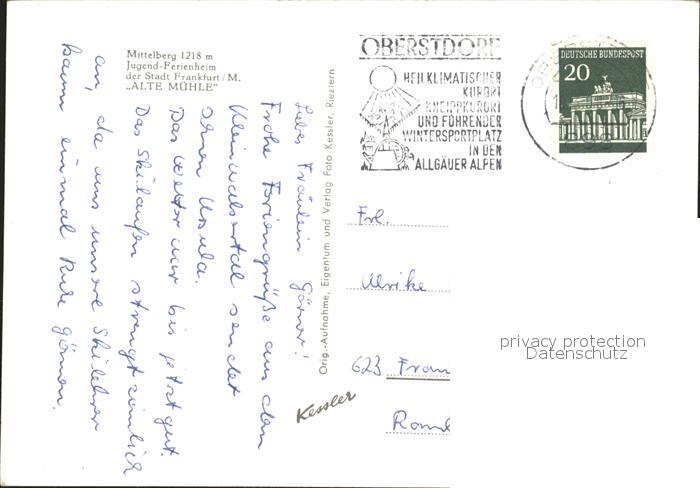 Mittelberg 1218 m
Jugend-Ferienheim
der Stadt Frankfurt/M.
„ALTE MÜHLE"
Liebes Fräulein Görner!
Frohe Feriengrüße aus dem
Kleinwalsertal sendet
Ihnen Ursula.
Das Wetter war bis jetzt gut.
Das Skilaufen strengt ziemlich
an, da uns unsere Skilehrer
kaum einmal Ruhe gönnen.
Orig.-Aufnahme, Eigentum und Verlag Foto Kessler, Riezlern
Kessler
OBERSTDORF
HEILKLIMATISCHER
KURORT
KNEIPPKURORT
UND FÜHRENDER
WINTERSPORTPLATZ
IN DEN
ALLGÄUER ALPEN
DEUTSCHE BUNDESPOST
20
Frl.
Ulrike
623 Fran
privacy protection
Datenschutz